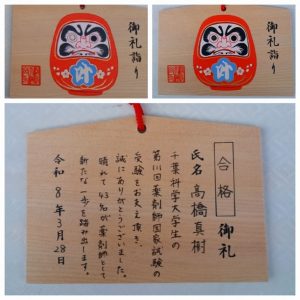 御礼詣り
御礼詣り
合格
御礼
氏名 高橋真樹
千葉科学大学生の
第111回薬剤師国家試験の
受験をお支え頂き、
誠にありがとうございました。
晴れて43名が薬剤師として
新たな一歩を踏み出します。
令和8年3月28日